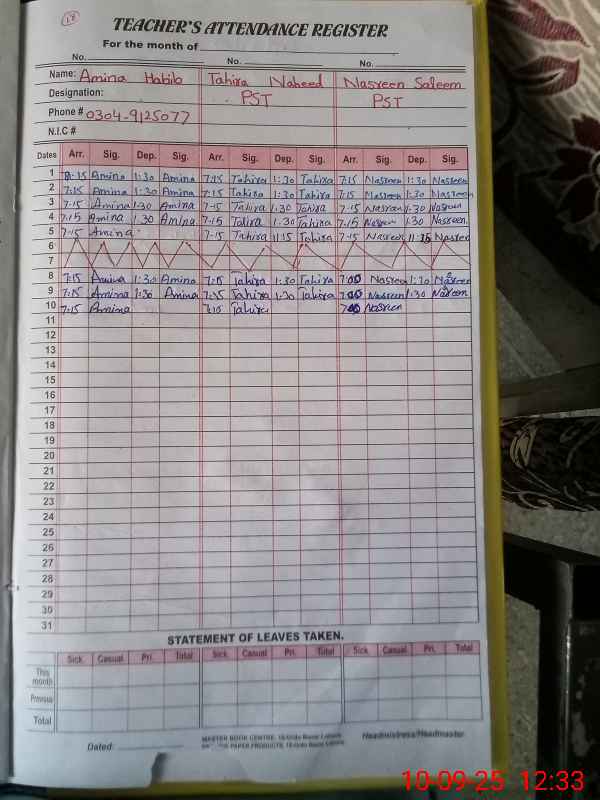 18
TEACHER'S ATTENDANCE REGISTER
For the month of
No. No. No.
Name: Amina Habib Tahira Naheed Nasreen Saleem
Designation: PST PST
Phone # 0304-9125077
N.I.C #
Dates Arr. Sig. Dep. Sig. Arr. Sig. Dep. Sig. Arr. Sig. Dep. Sig.
1 7:15 Amina 1:30 Amina 7:15 Tahira 1:30 Tahira 7:15 Nasreen 1:30 Nasreen
2 7:15 Amina 1:30 Amina 7:15 Tahira 1:30 Tahira 7:15 Nasreen 1:30 Nasreen
3 7-15 Amina 1:30 Amina 7-15 Tahira 1:30 Tahira 7-15 Nasreen 1:30 Nasreen
4 7:15 Amina 1:30 Amina 7-15 Tahira 1:30 Tahira 7-15 Nasreen 1:30 Nasreen
5 7-15 Amina 7-15 Tahira 11:15 Tahira 7-15 Nasreen 11:15 Nasreen
6
7
8 7:15 Amina 1:30 Amina 7:15 Tahira 1:30 Tahira 7:00 Nasreen 1:30 Nasreen
9 7:15 Amina 1:30 Amina 7:15 Tahira 1:30 Tahira 7:00 Nasreen 1:30 Nasreen
10 7:15 Amina 7:10 Tahira 7:00 Nasreen
11
12
13
14
15
16
17
18
19
20
21
22
23
24
25
26
27
28
29
30
31
STATEMENT OF LEAVES TAKEN.
Sick Casual Pri. Total Sick Casual Pri. Total Sick Casual Pri. Total
This month
Previous
Total
Dated: MASTER BOOK CENTRE Headmistress/Headmaster
PAPER PRODUCTS
10-09-25 12:33